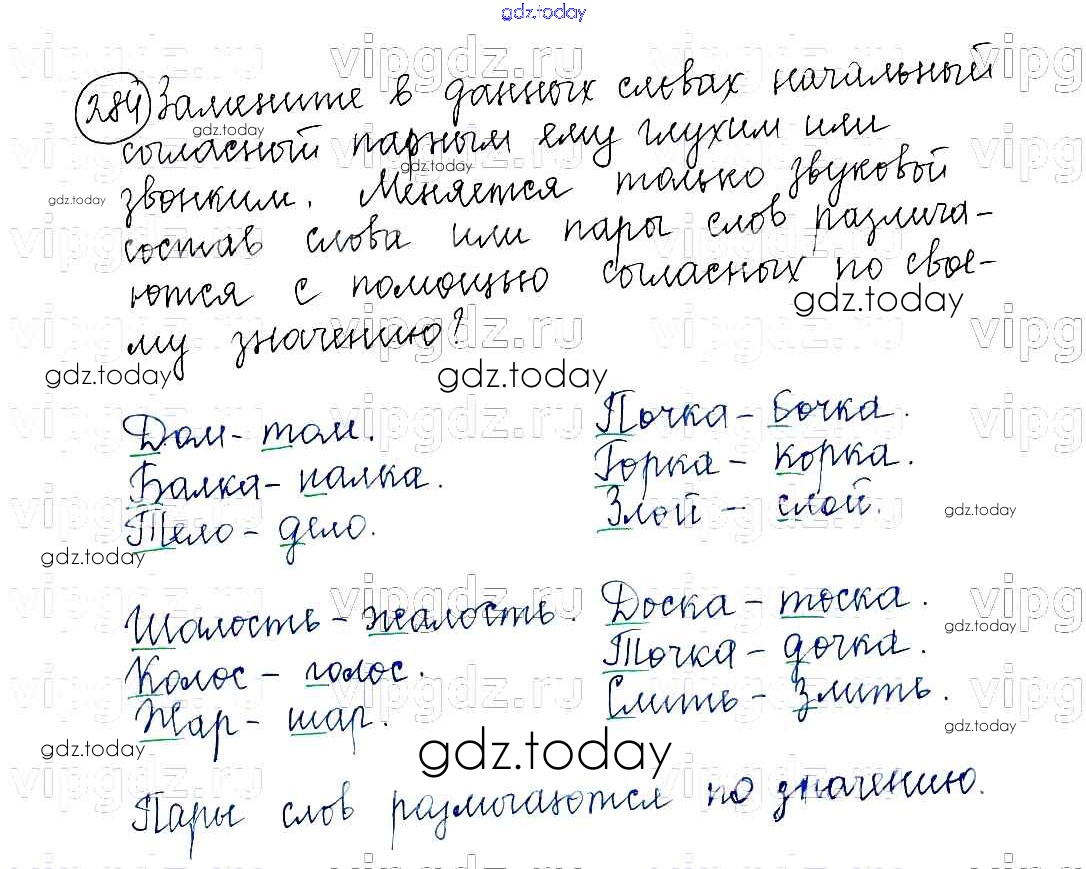 gdz.today
284 Замените в данных словах начальный
согласный парным ему глухим или
звонким. Меняется только звуковой
состав слова или пары слов различа-
ются с помощью согласных по свое-
му значению?
Дом - том. Почка - бочка.
Балка - палка. Горка - корка.
Тело - дело. Злой - слой.
Шалость - жалость. Доска - тоска.
Колос - голос. Точка - дочка.
Жар - шар. Слить - злить.
gdz.today
Пары слов различаются по значению.